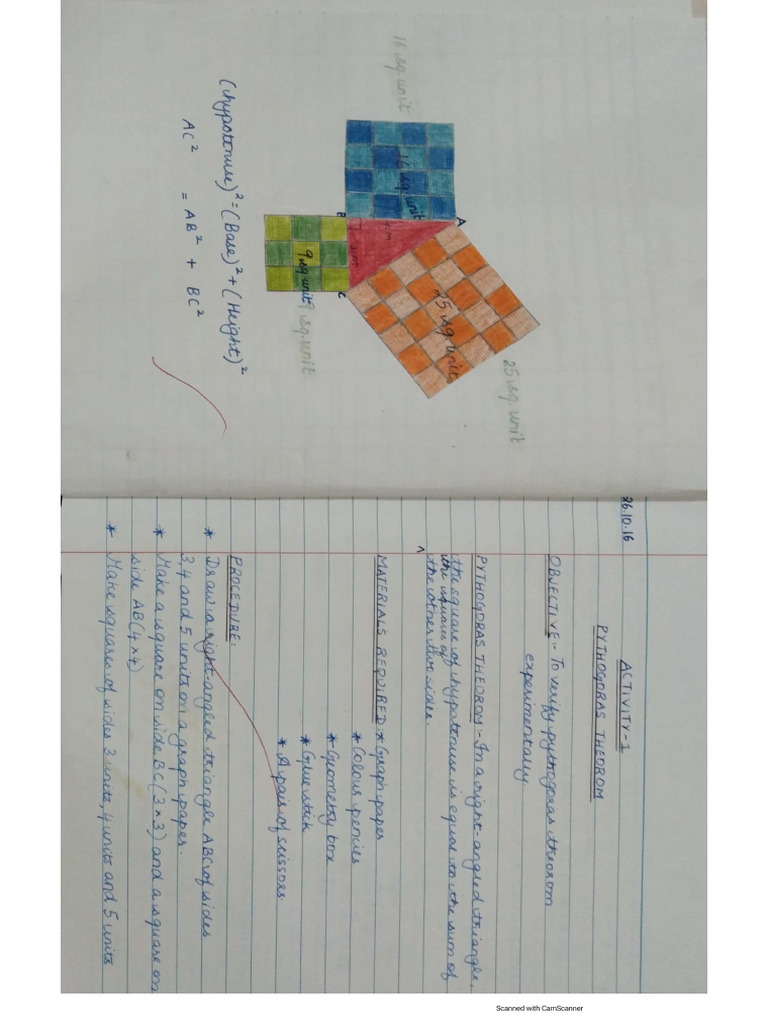 26.10.16
ACTIVITY-1
PYTHOGORAS THEOROM
OBJECTIVE:- To verify pythogoras theorom
experimentally
PYTHOGORAS THEOROM:- In a right-angled triangle,
the square of hypotenuse is equal to the sum of
the squares of
^ the other two sides.
MATERIALS REQUIRED:* Graph paper
* Colour pencils
* Geometry box
* Glue stick
* A pair of scissors
PROCEDURE:
* Draw a right-angled triangle ABC of sides
3,4 and 5 units on a graph paper.
* Make a square on side BC (3×3) and a square on
side AB(4×4)
* Make squares of sides 3 units, 4 units and 5 units
25 sq. unit
25 sq. unit
A
16 sq. unit
16 sq. unit
B
C
9 sq. unit
9 sq. unit
(Hypotenuse)² = (Base)² + (Height)²
AC² = AB² + BC²
Scanned with CamScanner